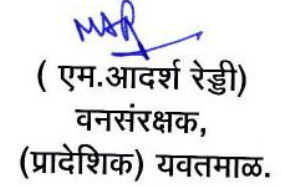 ( एम.आदर्श रेड्डी)
वनसंरक्षक,
(प्रादेशिक) यवतमाळ.